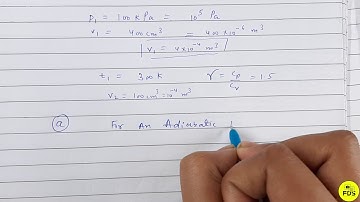 P₁ = 100 k Pa = 10⁵ Pa
V₁ = 400 cm³ = 400 × 10⁻⁶ m³
V₁ = 4 × 10⁻⁴ m³
t₁ = 300 k γ = Cp/Cv = 1.5
V₂ = 100 cm³ = 10⁻⁴ m³
(a) For An Adiabatic
FDS